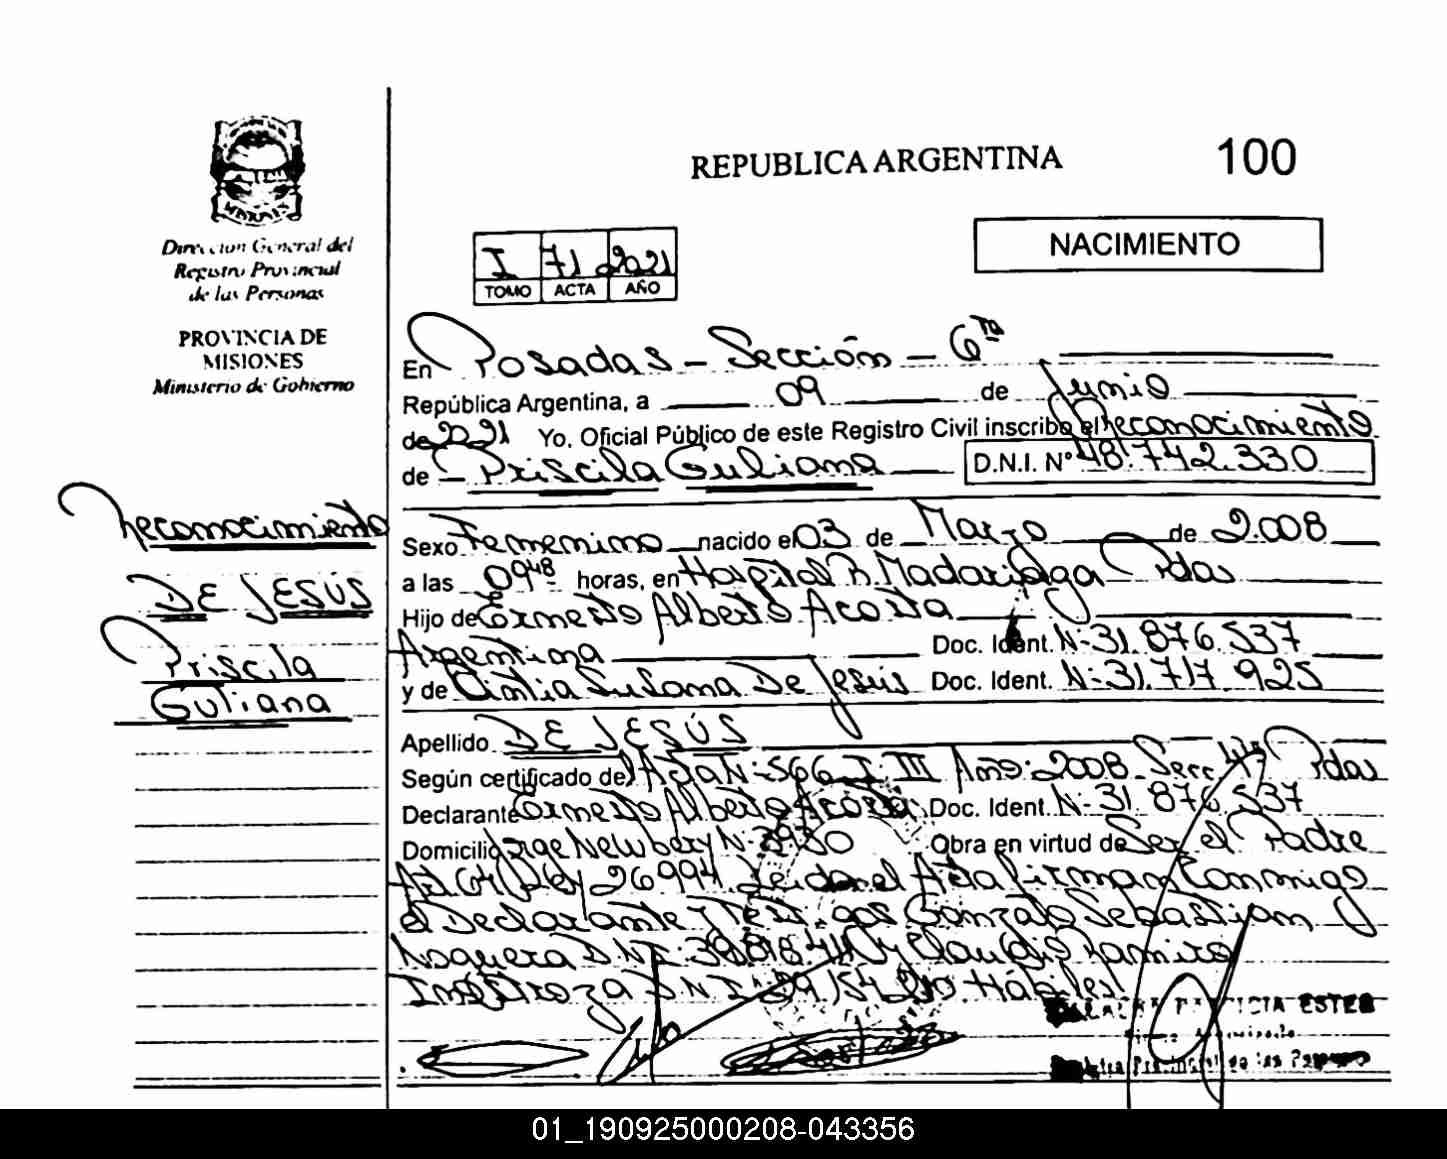 REPUBLICA ARGENTINA
100
Direccion General del
Registro Provincial
de las Personas
PROVINCIA DE
MISIONES
Ministerio de Gobierno
NACIMIENTO
I 71 2021
TOMO ACTA AÑO
En Posadas - Sección - 6ta
República Argentina, a 09 de Junio
de 2021 Yo, Oficial Público de este Registro Civil inscribo el Reconocimiento
de - Priscila Guliana D.N.I. Nº 48.742.330
Reconocimiento
DE JESÚS
Priscila
Guliana
Sexo Femenino nacido el 03 de Marzo de 2.008
a las 09 48 horas, en Hospital R. Madariaga Pdas
Hijo de Ernesto Alberto Acosta
Argentina Doc. Ident. N- 31.876.537
y de Cintia Susana De Jesús Doc. Ident. N- 31.717.925
Apellido DE JESÚS
Según certificado de Acta N- 566 T. III Año: 2008 Secc. 4ta Pdas
Declarante Ernesto Alberto Acosta Doc. Ident. N- 31.876.537
Domicilio Jorge Newbery N- Obra en virtud de Ser el Padre
Art. 64 Ley 26994. Leída el Acta firman Conmigo
el Declarante y Testigos Gonzalo Sebastian
Noguera D.N.I. y Claudio Ramiro
D.N.I. Hábiles
PATRICIA ESTER
Provincial de las Personas
01_190925000208-043356